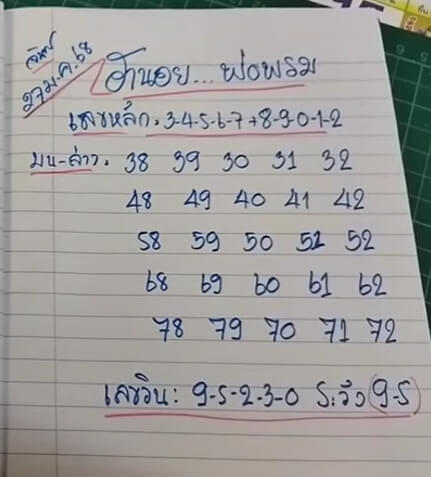 จันทร์
27 ม.ค. 68
ฮานอย... พ่อพรม
เลขหลัก. 3-4-5-6-7+8-9-0-1-2
บน-ล่าง. 38 39 30 31 32
48 49 40 41 42
58 59 50 51 52
68 69 60 61 62
78 79 70 71 72
เลขวิน: 9-5-2-3-0 ระวัง (9-5)